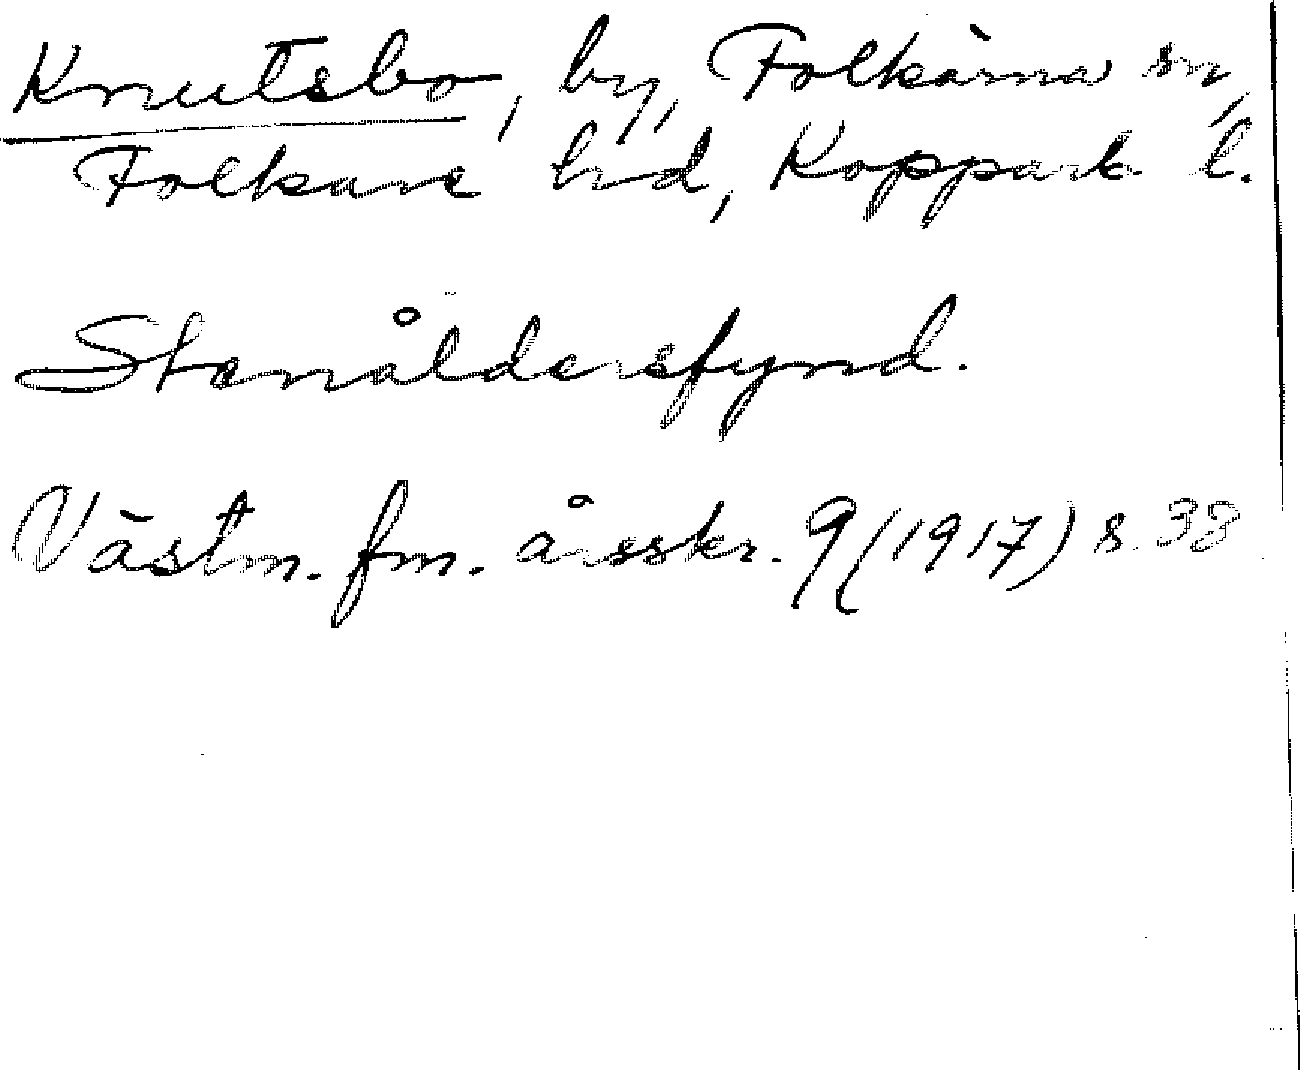 Knutsbo, by, Folkärna sn,
Folkare hd, Kopparb. l.
Stenåldersfynd.
Västm. fm. årsskr. 9 (1917) s. 38